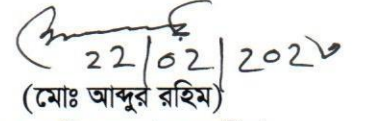 22/02/202৮
(মোঃ আব্দুর রহিম)